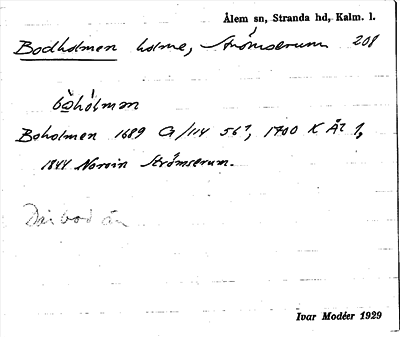 Ålem sn, Stranda hd, Kalm. l.
Bodholmen holme, Strömserum 208
bòhólmən
Boholmen 1689 G/114 56¹, 1700 K Äl 1,
1844 Norvin Strömserum.
Ivar Modéer 1929